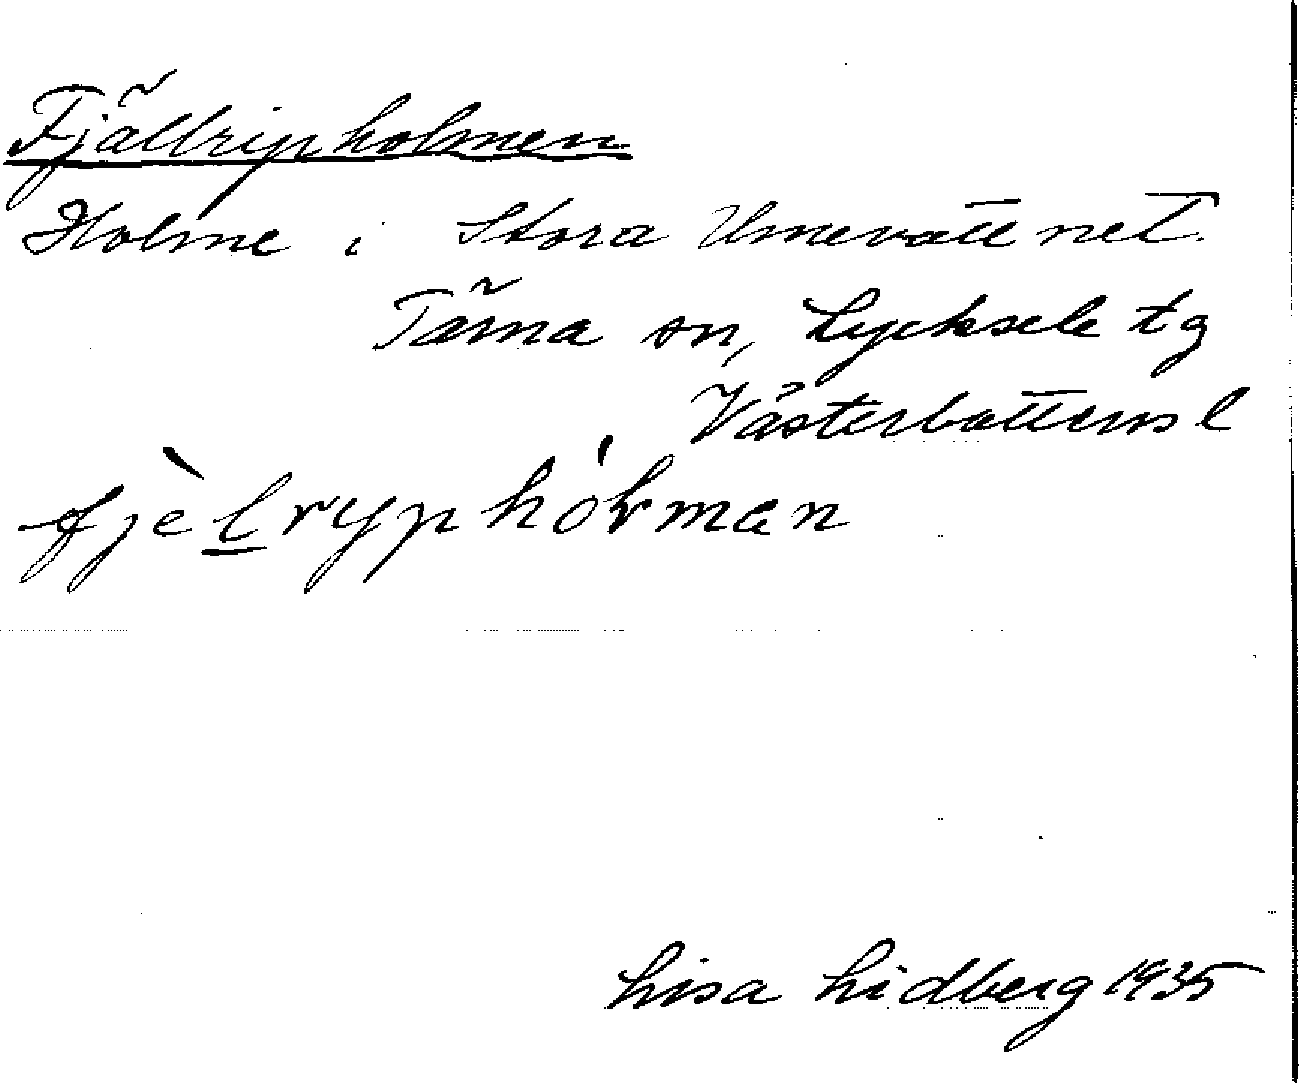 Fjällripholmen
Holme i Stora Umevattnet.
Tärna sn, Lycksele tg
Västerbottens l
fjèl̲ryphóɫman
Lisa Lidberg 1935